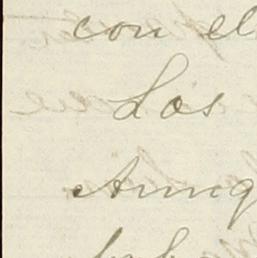 con el
Los
Aunq